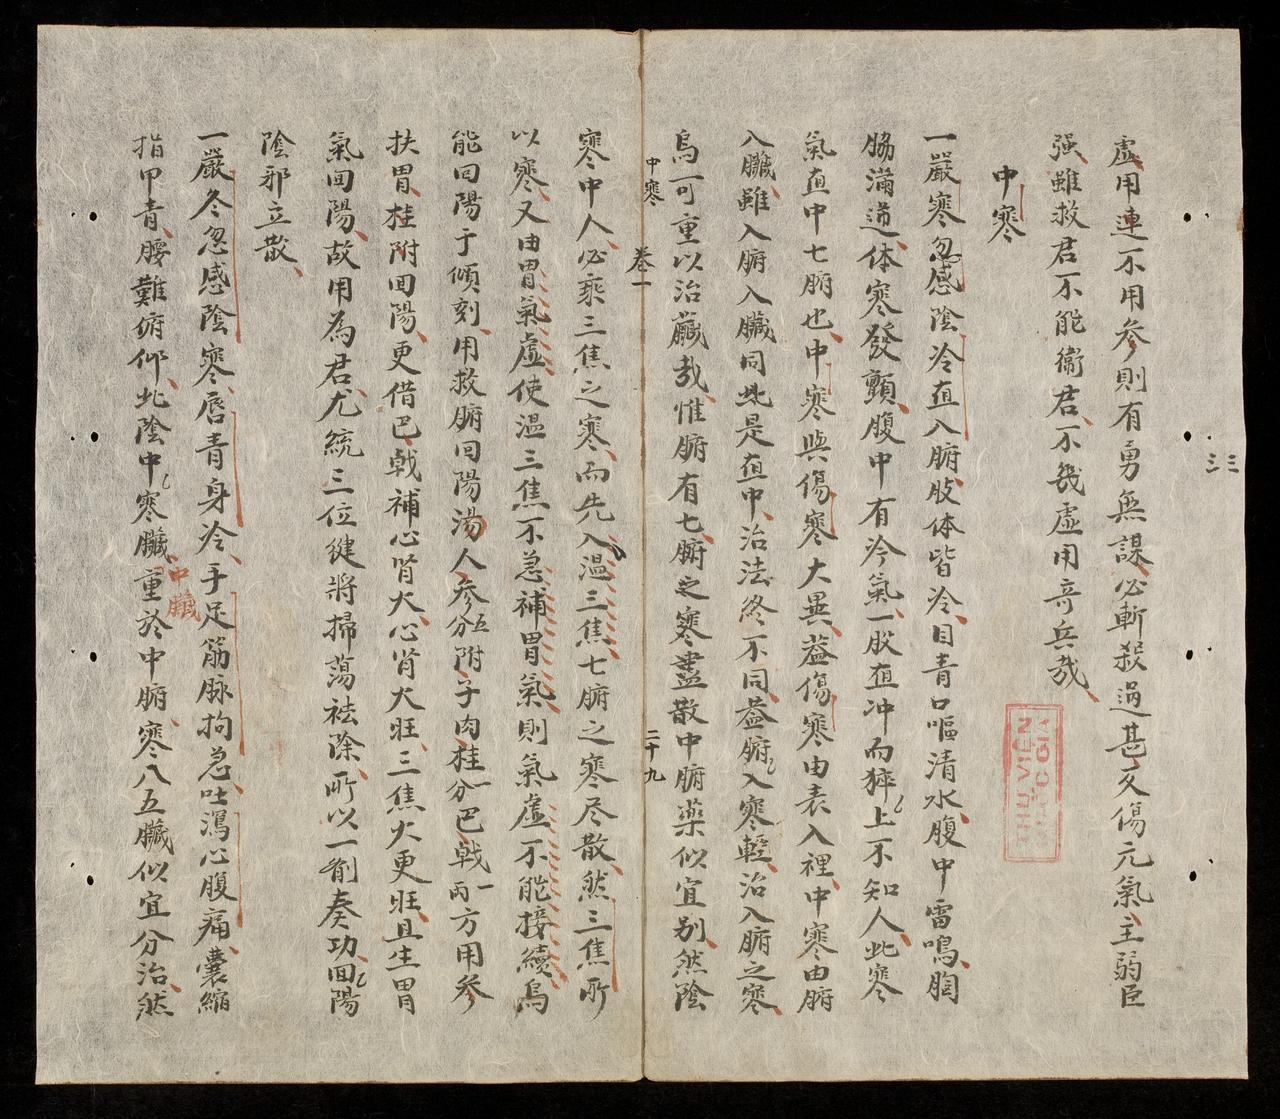 虛用連不用參則有勇無謀必斬殺過甚又傷元氣主弱臣
强雖救君不能衞君不幾虛用奇兵哉
中寒
一嚴寒忽感陰冷直入腑肢体皆冷目青口嘔清水腹中雷鳴胸
脇滿逆体寒發顫腹中有冷氣一股直冲而猝上不知人此寒
氣直中七腑也中寒與傷寒大異蓋傷寒由表入裡中寒由腑
入臟雖入腑入臟同此是直中治法終不同蓋腑入寒輕治入腑之寒
烏可重以治臟哉惟腑有七腑之寒盡散中腑藥似宜别然陰
中寒
卷一
二十九
寒中人必乘三焦之寒而先入温三焦七腑之寒尽散然三焦所
以寒又由胃氣虛使温三焦不急補胃氣則氣虛不能接續烏
能回陽于傾刻用救腑回陽湯人參五分附子肉桂一分巴戟一両方用參
扶胃桂附回陽更借巴戟補心肾火心肾火旺三焦火更旺且生胃
氣回陽故用為君尤統三位健將掃蕩祛除所以一劑奏功回陽
陰邪立散
一嚴冬忽感陰寒唇青身冷手足筋脉拘急吐瀉心腹痛囊縮
指甲青腰難俯仰此陰中寒臟重於中腑寒八五臟似宜分治然
中臟
三三
THU VIEN